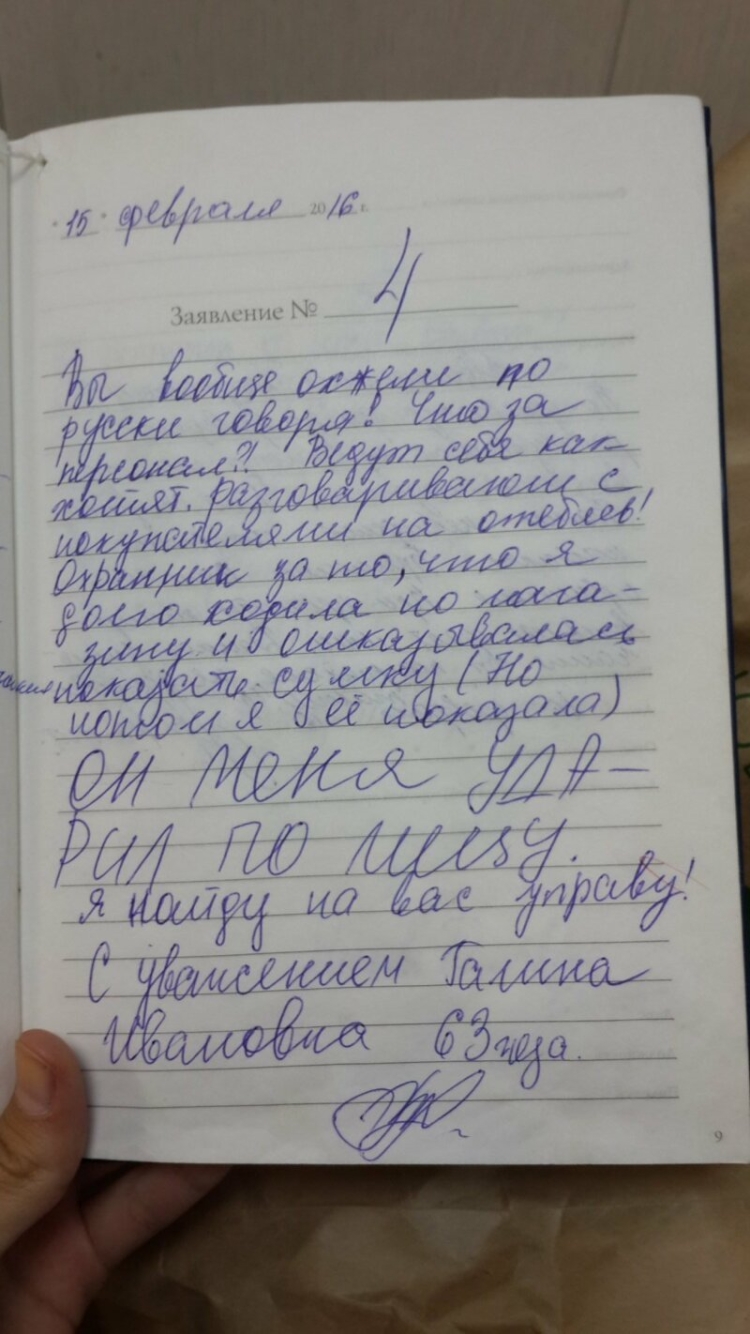 " 15 " февраля 2016 г.
Заявление № 4
Вы вообще охжели по
русски говоря! Что за
персонал?! Ведут себя как
хотят. разговаривают с
покупателями на отебись!
Охранник за то, что я
долго ходила по мага-
зину и отказывалась
показать сумку (Но
потом я её показала)
ОН МЕНЯ УДА-
РИЛ ПО ЛИЦУ.
Я найду на вас управу!
С уважением Галина
Ивановна 63 года.
9